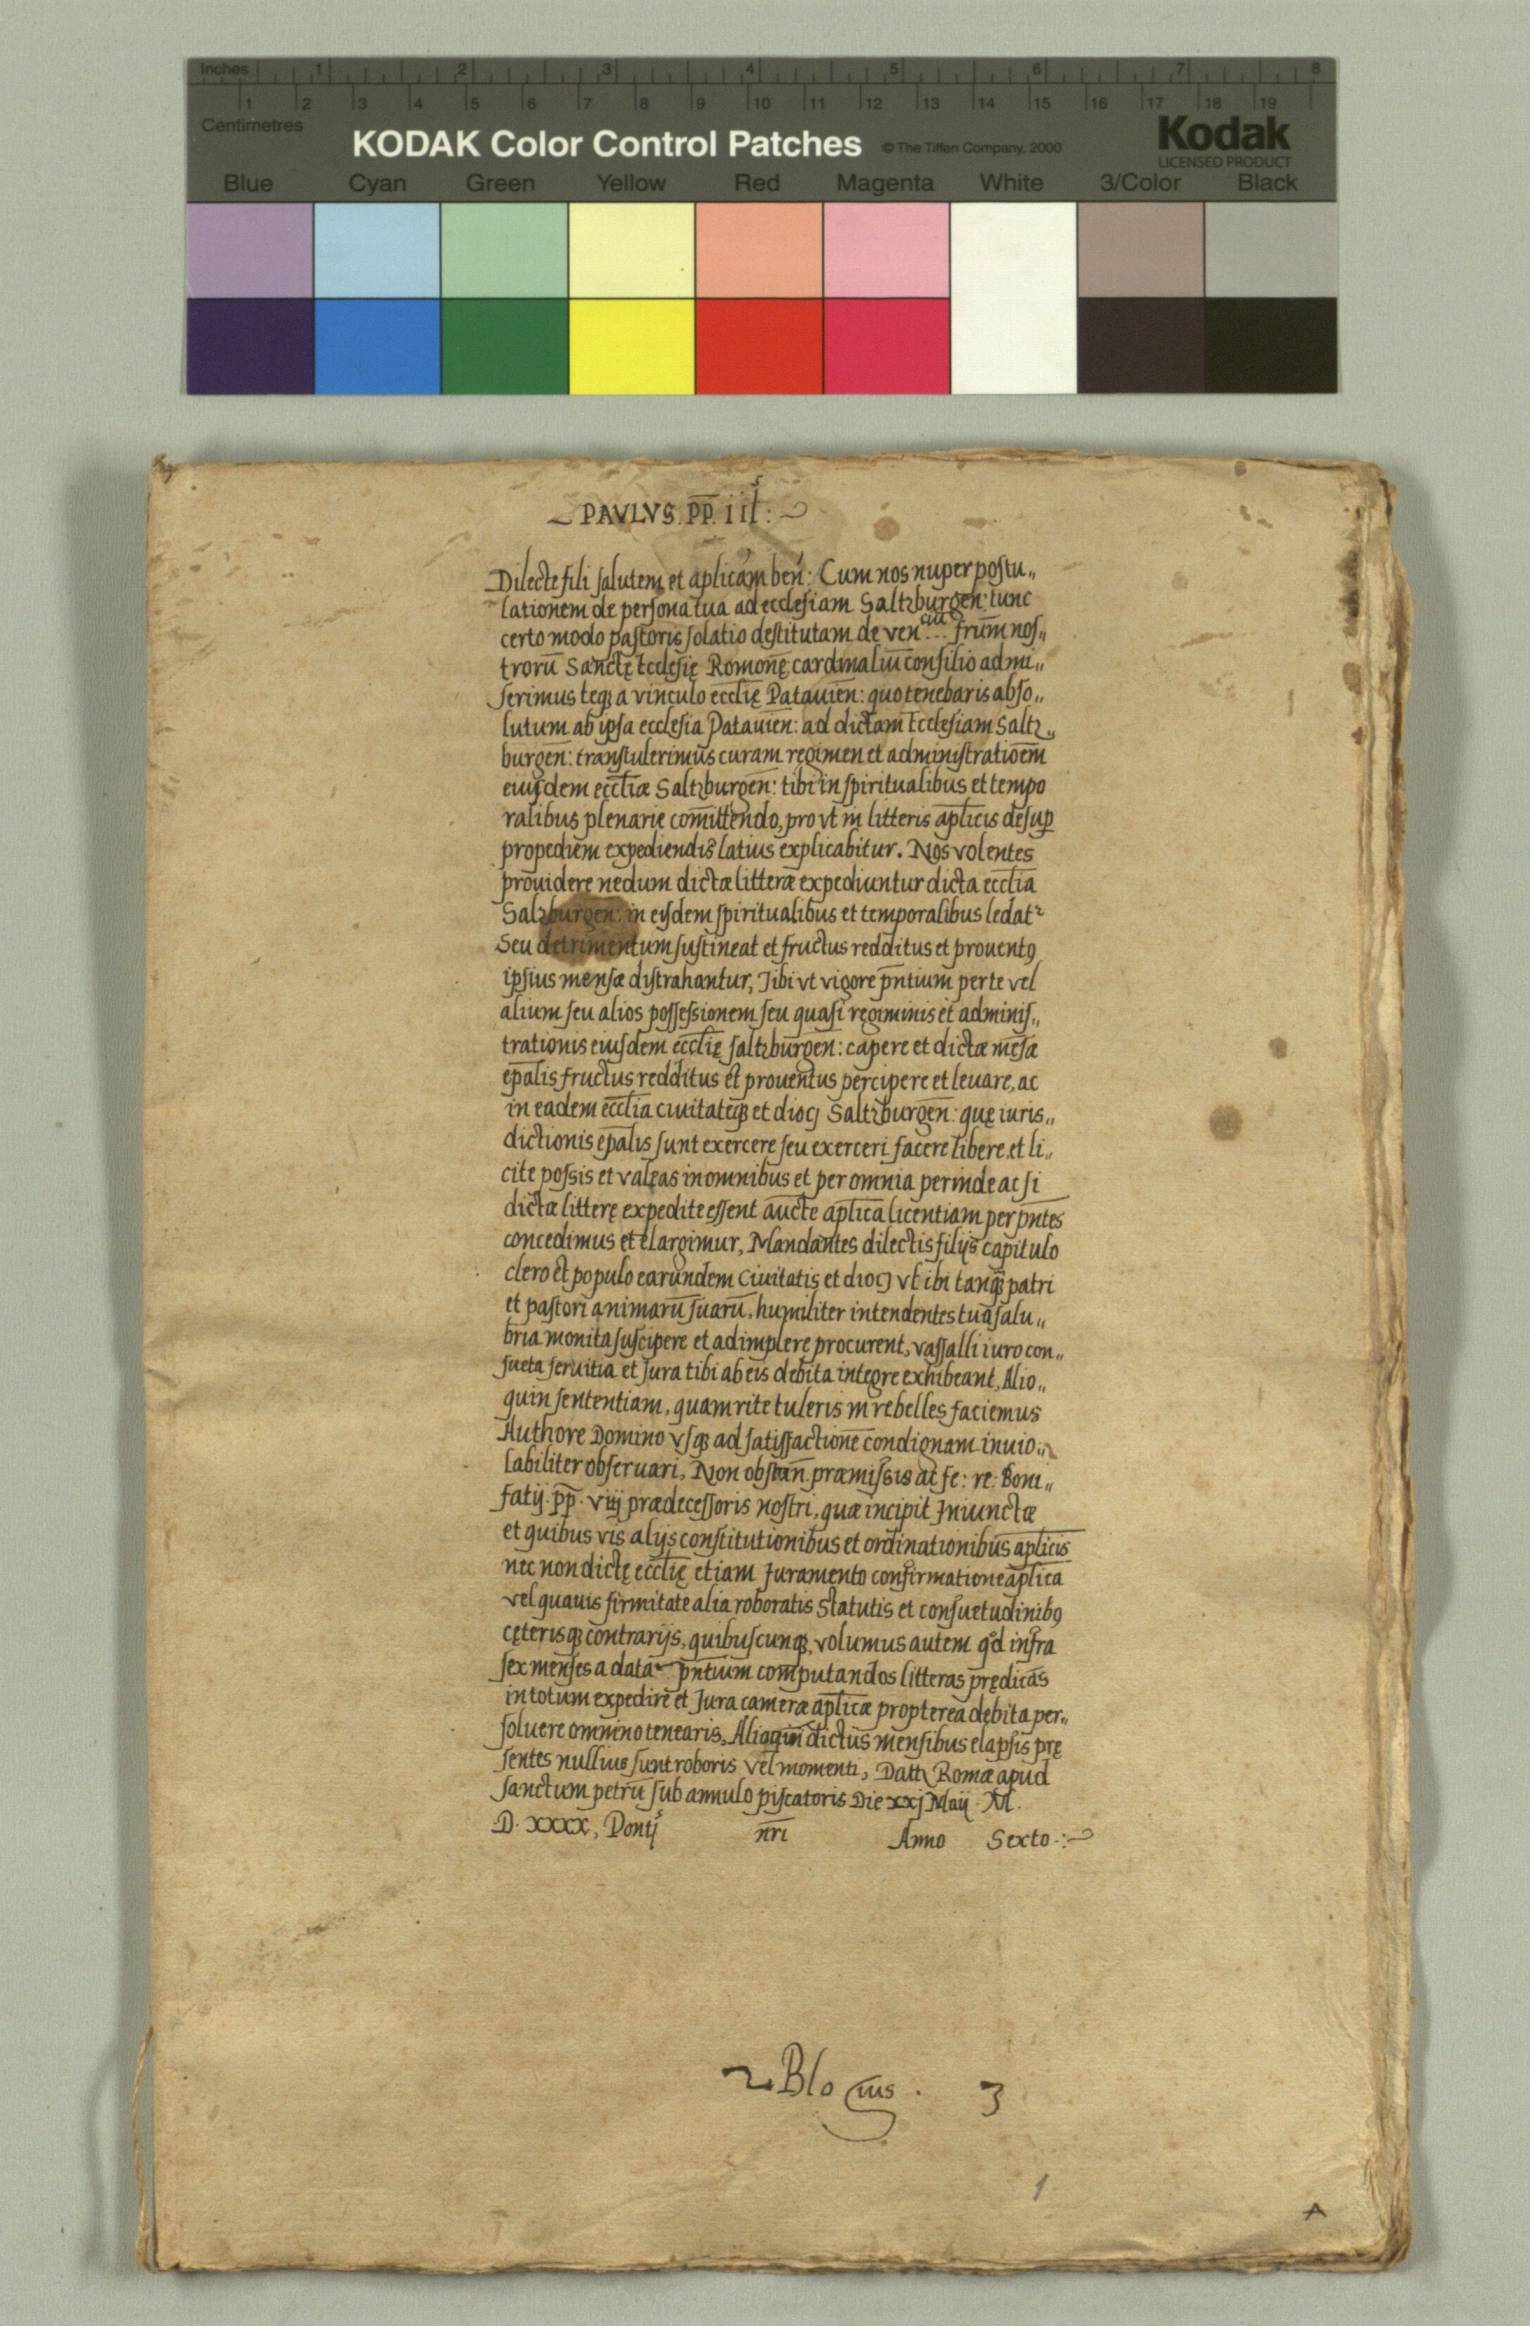 Inches 1 2 3 4 5 6 7 8
1 2 3 4 5 6 7 8 9 10 11 12 13 14 15 16 17 18 19
Centimetres
KODAK Color Control Patches © The Tiffen Company, 2000 Kodak
LICENSED PRODUCT
Blue Cyan Green Yellow Red Magenta White 3/Color Black
PAVLVS. PP. iii:
Dilecte fili salutem et aplicam ben: Cum nos nuper postu„
lationem de persona tua ad ecclesiam Saltzburgen: tunc
certo modo pastoris solatio destitutam de ven frum nos„
trorū Sanctę Ecclesię Romonę cardinaliū consilio admi„
serimus teq3 a vinculo eccłię Patauien: quo tenebaris abso„
lutum ab ipsa ecclesia Patauien: ad dictam Ecclesiam Saltz„
burgen: transtulerimus curam regimen et administratioem
eiusdem eccliæ Saltzburgen: tibi in spiritualibus et tempo
ralibus plenarie comittendo, pro vt in litteris aplicis desup
propediem expediendis latius explicabitur. Nos volentes
prouidere nedum dictæ litteræ expediuntur dicta ecclia
Salzburgen: in eisdem spiritualibus et temporalibus ledat̃
Seu detrimentum sustineat et fructus redditus et prouent9
ipsius mensæ distrahantur, Tibi vt vigore pñtium per te vel
alium seu alios possessionem seu quasi regiminis et adminis„
trationis eiusdem ecclię saltzburgen: capere et dictæ mēsæ
epalis fructus redditus et prouentus percipere et leuare, ac
in eadem ecclia ciuitateq3 et dioc Saltzburgen: quę iuris„
dictionis epalis sunt exercere seu exerceri facere libere et li„
cite possis et valeas in omnibus et per omnia perinde ac si
dictæ litterę expedite essent aucte aplica licentiam per pñtes
concedimus et elargimur, Mandantes dilectis filijs capitulo
clero et populo earundem Ciuitatis et dioc vt ibi tanq3 patri
et pastori animarū suarū, humiliter intendentes tua salu„
bria monita suscipere et adimplere procurent, vassalli iuro con„
sueta seruitia et Jura tibi ab eis debita integre exhibeant, Alio„
quin sententiam, quam rite tuleris in rebelles faciemus
Authore Domino vsq3 ad satisfactione condignam inuio„
labiliter obseruari, Non obstan præmissis ac fe: re: Boni„
fatij pp. viij prædecessoris nostri, quæ incipit Iniunctæ
et quibus vis alijs constitutionibus et ordinationibus aplicis
nec non dictę ecclię etiam Juramento confirmatione aplica
vel quauis firmitate alia roboratis Statutis et consuetudinib9
cęterisq3 contrarijs, quibuscunq3, volumus autem qd infra
sex menses a data pñtium computandos litteras prędicas
in totum expedire et Jura cameræ aplicæ propterea debita per„
soluere omnino tenearis, Alioquin dictiis mensibus elapsis prę
sentes nullius sunt roboris vel momenti, Datt Romæ apud
sanctum petrū sub annulo piscatoris Die xxj Maij M.
D. xxxx, Ponti nri Anno Sexto
Blosius. 3
1
A